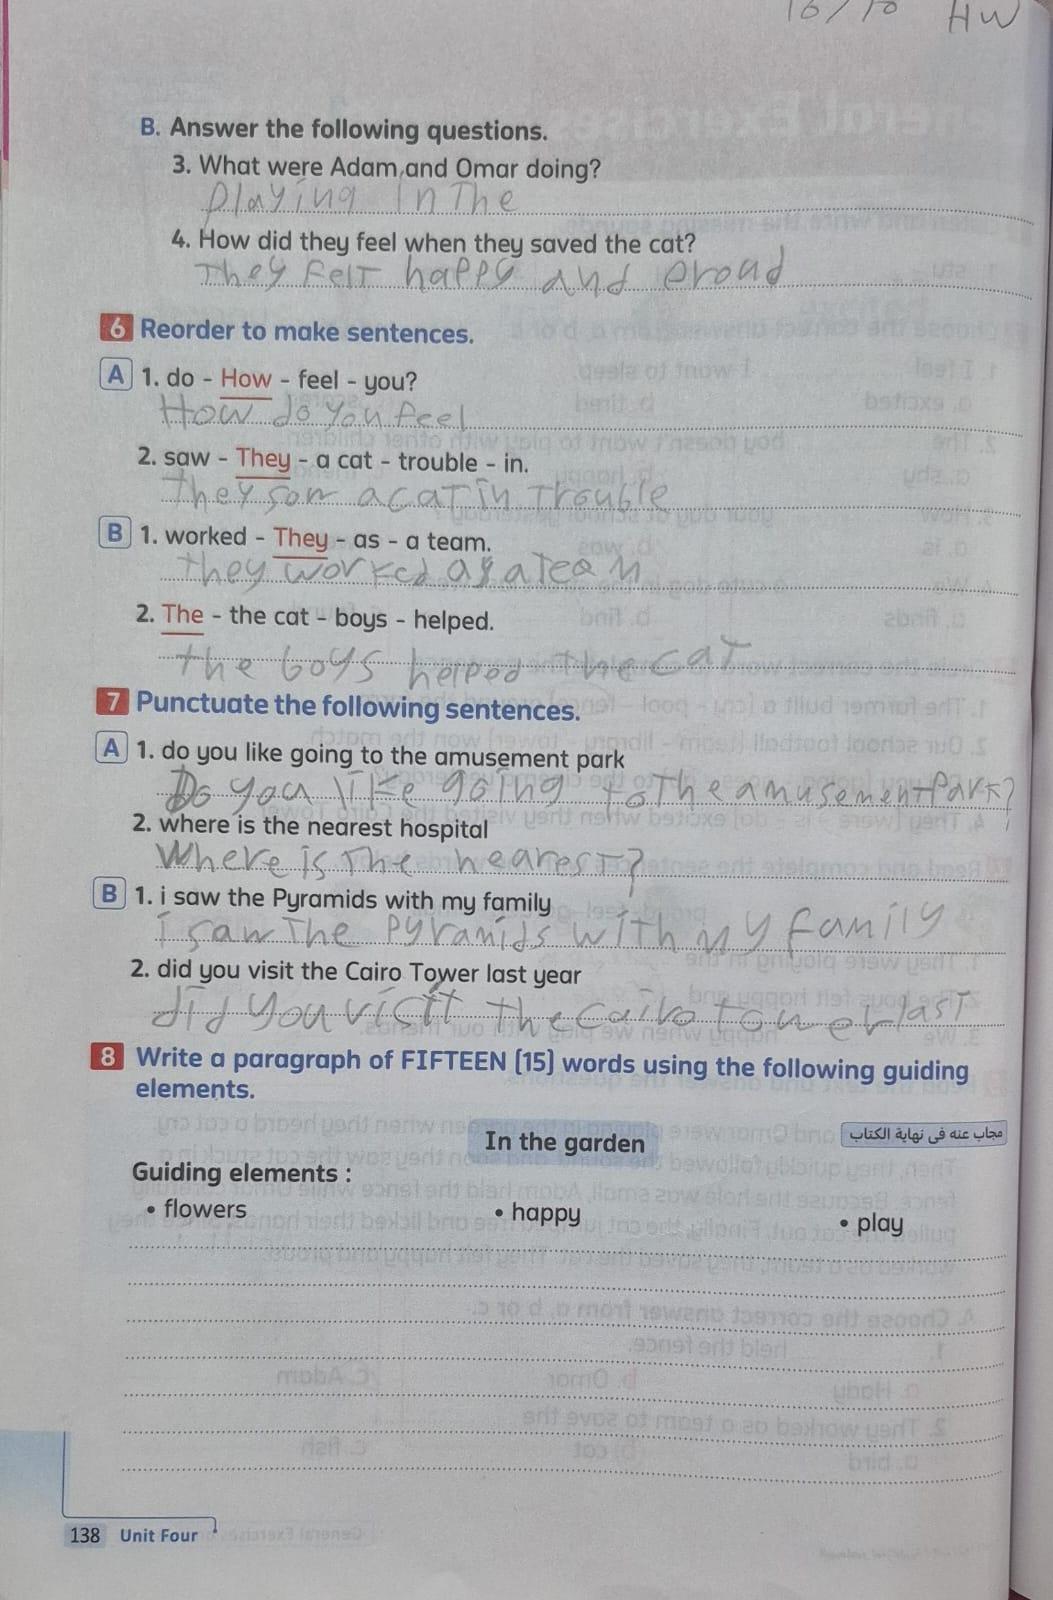 16/10 HW
B. Answer the following questions.
3. What were Adam and Omar doing?
Playing in The
4. How did they feel when they saved the cat?
They FelT happy and proud
6 Reorder to make sentences.
A 1. do - How - feel - you?
How do you feel
2. saw - They - a cat - trouble - in.
They saw a caT in Trouble
B 1. worked - They - as - a team.
they worked as a Team
2. The - the cat - boys - helped.
the boys helped the caT
7 Punctuate the following sentences.
A 1. do you like going to the amusement park
Do you like going to The amusement Park?
2. where is the nearest hospital
Where is The nearesT?
B 1. i saw the Pyramids with my family
i saw The Pyramids wiTh my family
2. did you visit the Cairo Tower last year
did you visit the cairo tower lasT
8 Write a paragraph of FIFTEEN (15) words using the following guiding
elements.
In the garden
مجاب عنه فى نهاية الكتاب
Guiding elements :
• flowers • happy • play
138 Unit Four